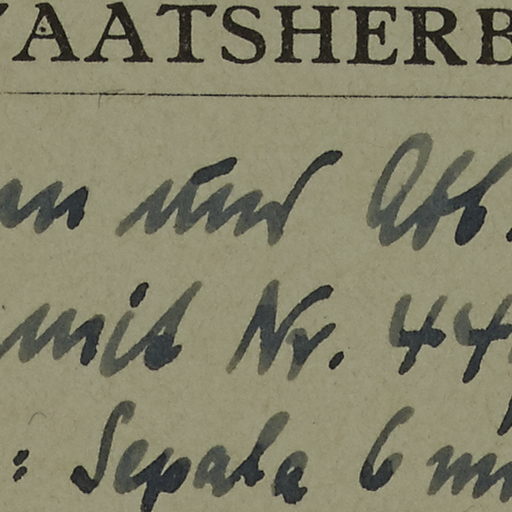 AATSHERB
und Abb.
mit Nr. 44
: Sepala 6 mm